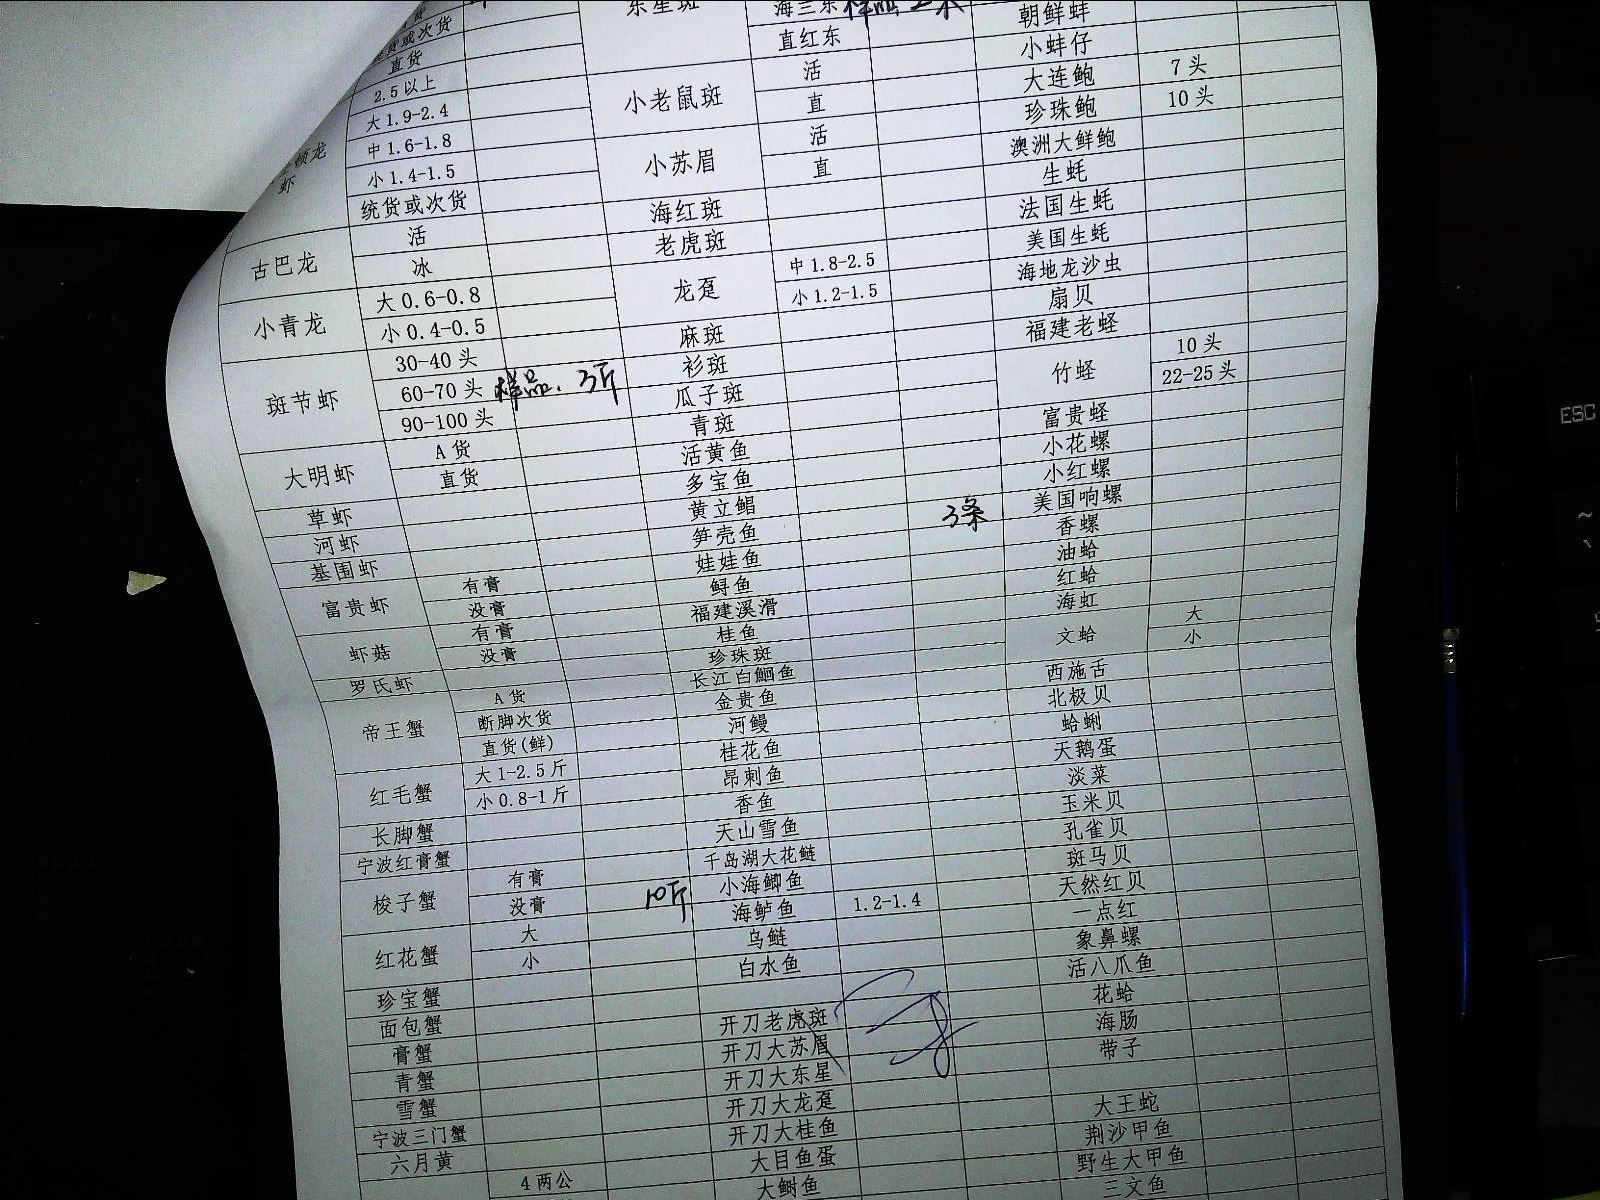 东星斑
海兰东 样品
朝鲜蚌
货或次货
直红东
小蚌仔
直货
活
大连鲍 7头
2.5以上
小老鼠斑
直
珍珠鲍 10头
大1.9-2.4
活
澳洲大鲜鲍
中1.6-1.8
小苏眉
直
生蚝
龙虾
小1.4-1.5
法国生蚝
统货或次货
海红斑
美国生蚝
古巴龙
活
老虎斑
海地龙沙虫
冰
龙趸
中1.8-2.5
扇贝
小青龙
大0.6-0.8
小1.2-1.5
福建老蛏
小0.4-0.5
麻斑
竹蛏
10头
22-25头
斑节虾
30-40头
杉斑
60-70头 样品、3斤
瓜子斑
富贵蛏
90-100头
青斑
小花螺
大明虾
A货
活黄鱼
小红螺
直货
多宝鱼
美国响螺
草虾
黄立鲳 3条
香螺
河虾
笋壳鱼
油蛤
基围虾
娃娃鱼
红蛤
富贵虾
有膏
鲟鱼
海虹
没膏
福建溪滑
文蛤
大
小
虾菇
有膏
桂鱼
没膏
珍珠斑
西施舌
罗氏虾
长江白鮰鱼
北极贝
帝王蟹
A货
金贵鱼
蛤蜊
断脚次货
河鳗
天鹅蛋
直货(鲜)
桂花鱼
淡菜
红毛蟹
大1-2.5斤
昂刺鱼
玉米贝
小0.8-1斤
香鱼
孔雀贝
长脚蟹
天山雪鱼
斑马贝
宁波红膏蟹
千岛湖大花鲢
天然红贝
梭子蟹
有膏
小海鲫鱼
一点红
没膏
10斤
海鲈鱼 1.2-1.4
象鼻螺
红花蟹
大
乌鲢
活八爪鱼
小
白水鱼
花蛤
珍宝蟹
海肠
面包蟹
开刀老虎斑
带子
膏蟹
开刀大苏眉
青蟹
开刀大东星
大王蛇
雪蟹
开刀大龙趸
荆沙甲鱼
宁波三门蟹
开刀大桂鱼
野生大甲鱼
六月黄
大目鱼蛋
三文鱼
4两公
大鲥鱼
ESC